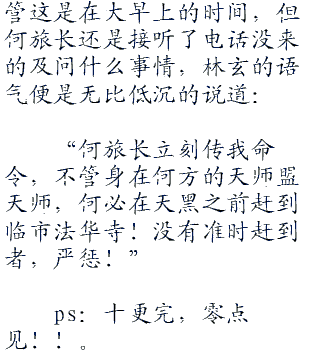 管这是在大早上的时间，但
何旅长还是接听了电话没来
的及问什么事情，林玄的语
气便是无比低沉的说道：
“何旅长立刻传我命
令，不管身在何方的天师盟
天师，何必在天黑之前赶到
临市法华寺！没有准时赶到
者，严惩！”
ps：十更完，零点
见！！。